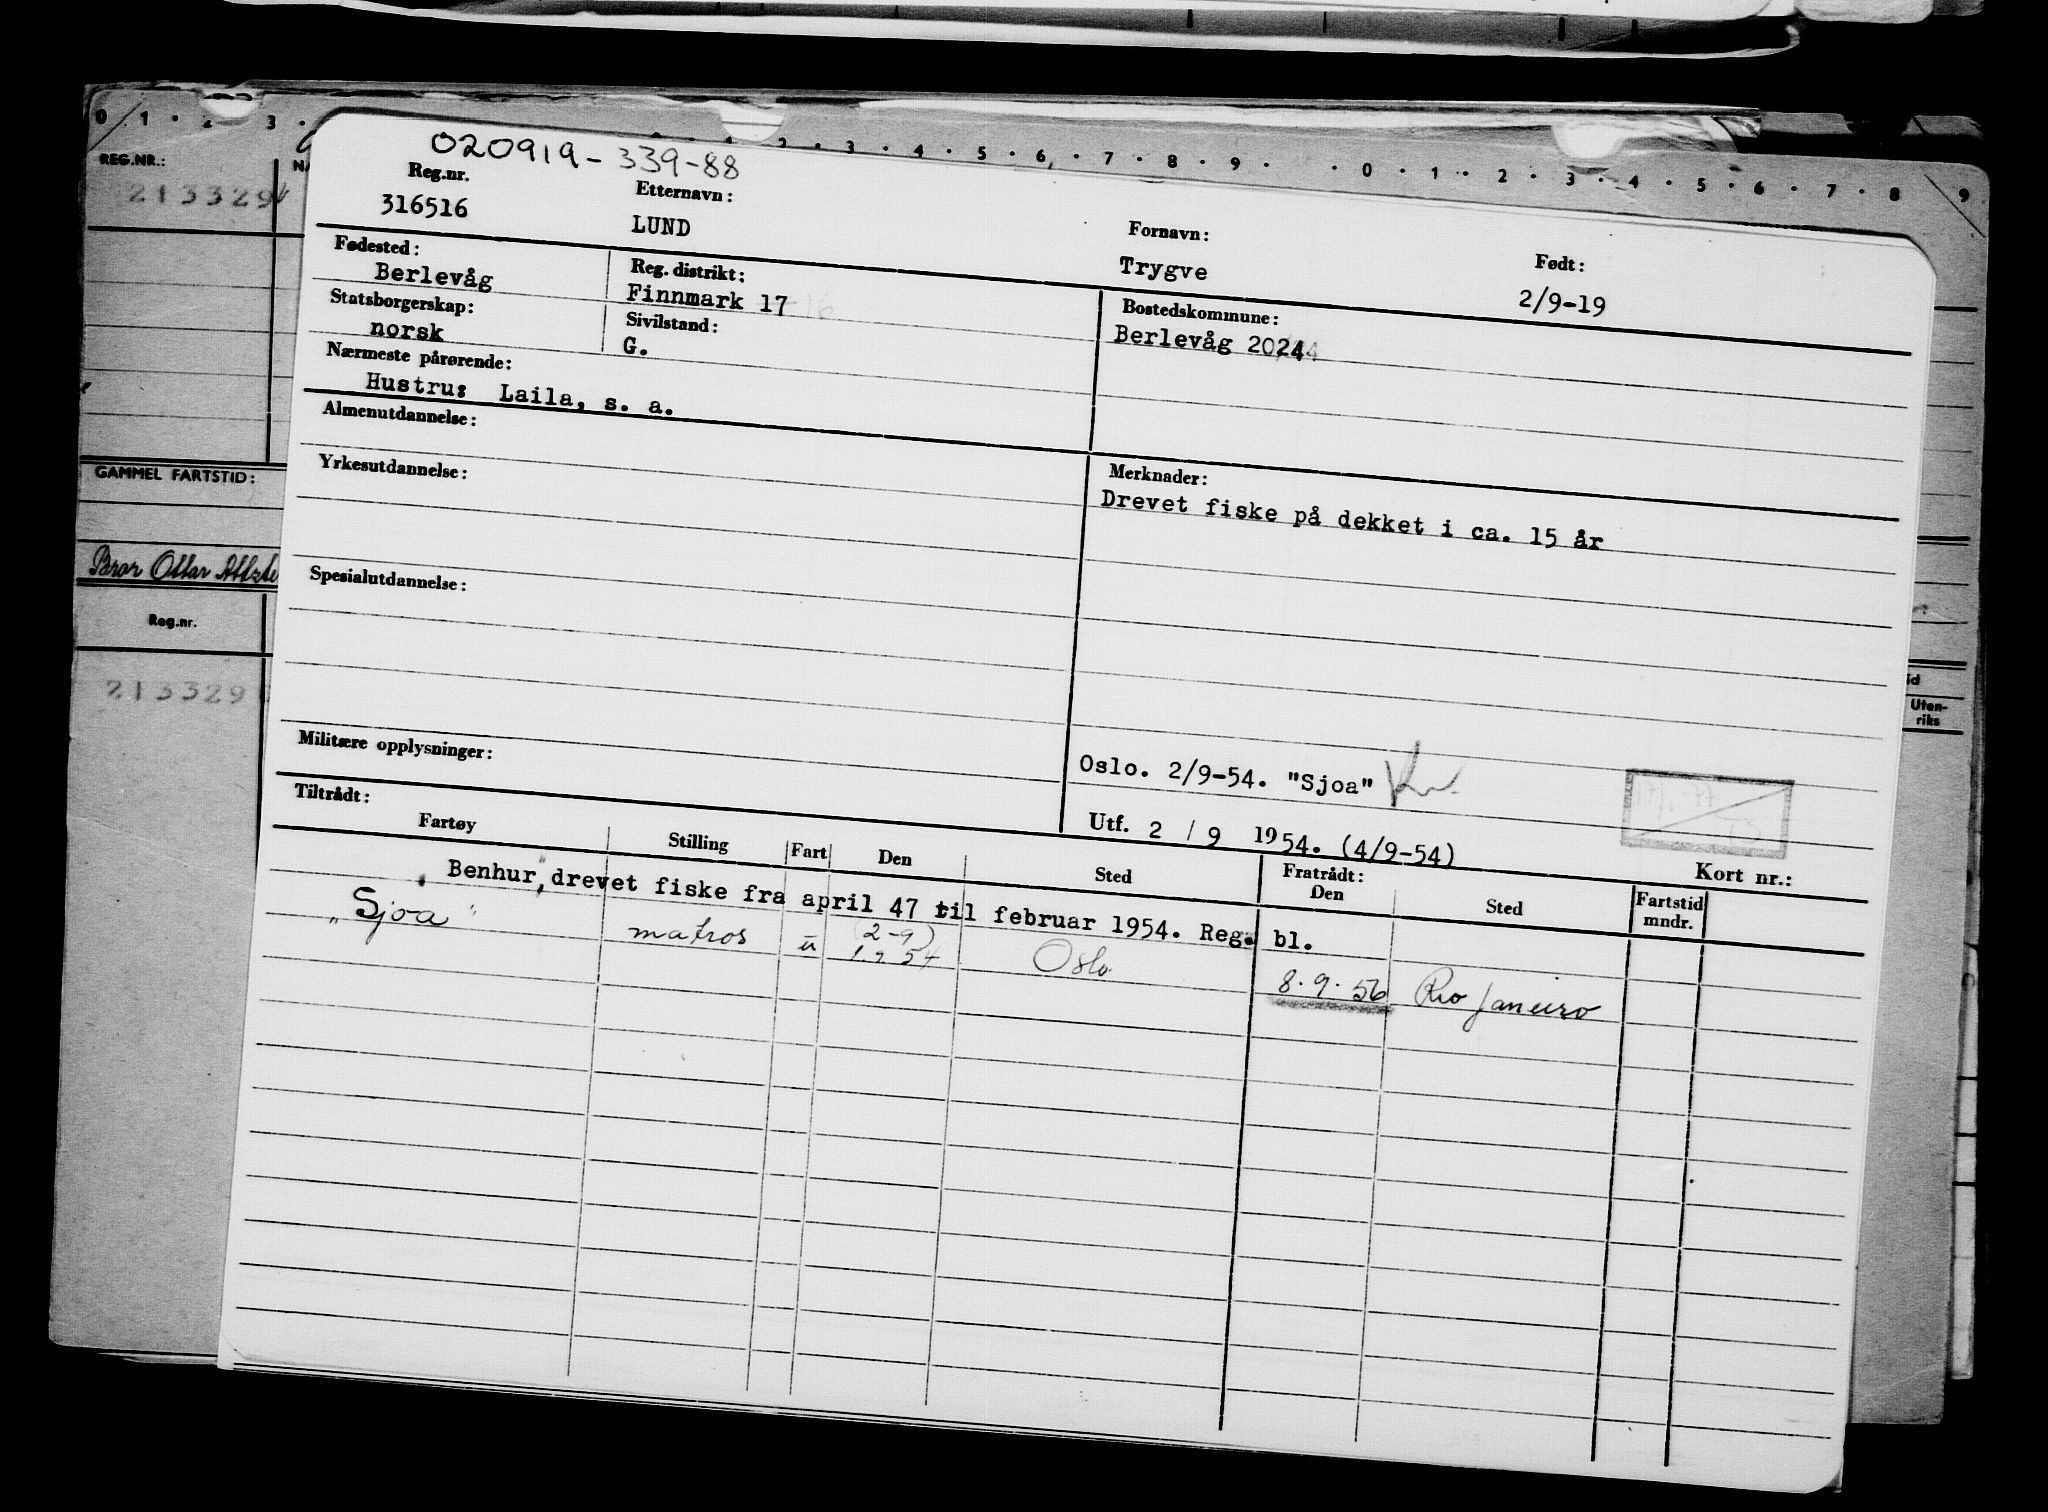 0 . 1 . 2 . 3 .
2 . 3 . 4 . 5 . 6 . 7 . 8 . 9 . . 0 . 1 . 2 . 3 . 4 . 5 . 6 . 7 . 8 9
REG.NR.:
213329
GAMMEL FARTSTID:
Bror Ottar
Reg.nr.
213329
Uten-
riks
020919-339-88
Reg.nr. Etternavn: Fornavn: Født:
316516 LUND Trygve 2/9-19
Fødested: Reg. distrikt: Bostedskommune:
Berlevåg Finnmark 17 Berlevåg 2024
Statsborgerskap: Sivilstand:
norsk G.
Nærmeste pårørende:
Hustru: Laila, s. a.
Almenutdannelse: Merknader:
Drevet fiske på dekket i ca. 15 år
Yrkesutdannelse:
Spesialutdannelse:
Militære opplysninger: Oslo. 2/9-54. "Sjoa"
Utf. 2 / 9 1954. (4/9-54)
Tiltrådt: Fratrådt: Kort nr.:
Fartøy Stilling Fart Den Sted Den Sted Fartstid mndr.
"Benhur", drevet fiske fra april 47 til februar 1954. Reg. bl.
"Sjoa" matros u (2-9) 1.9 54 Oslo 8.9.56 Rio Janeiro